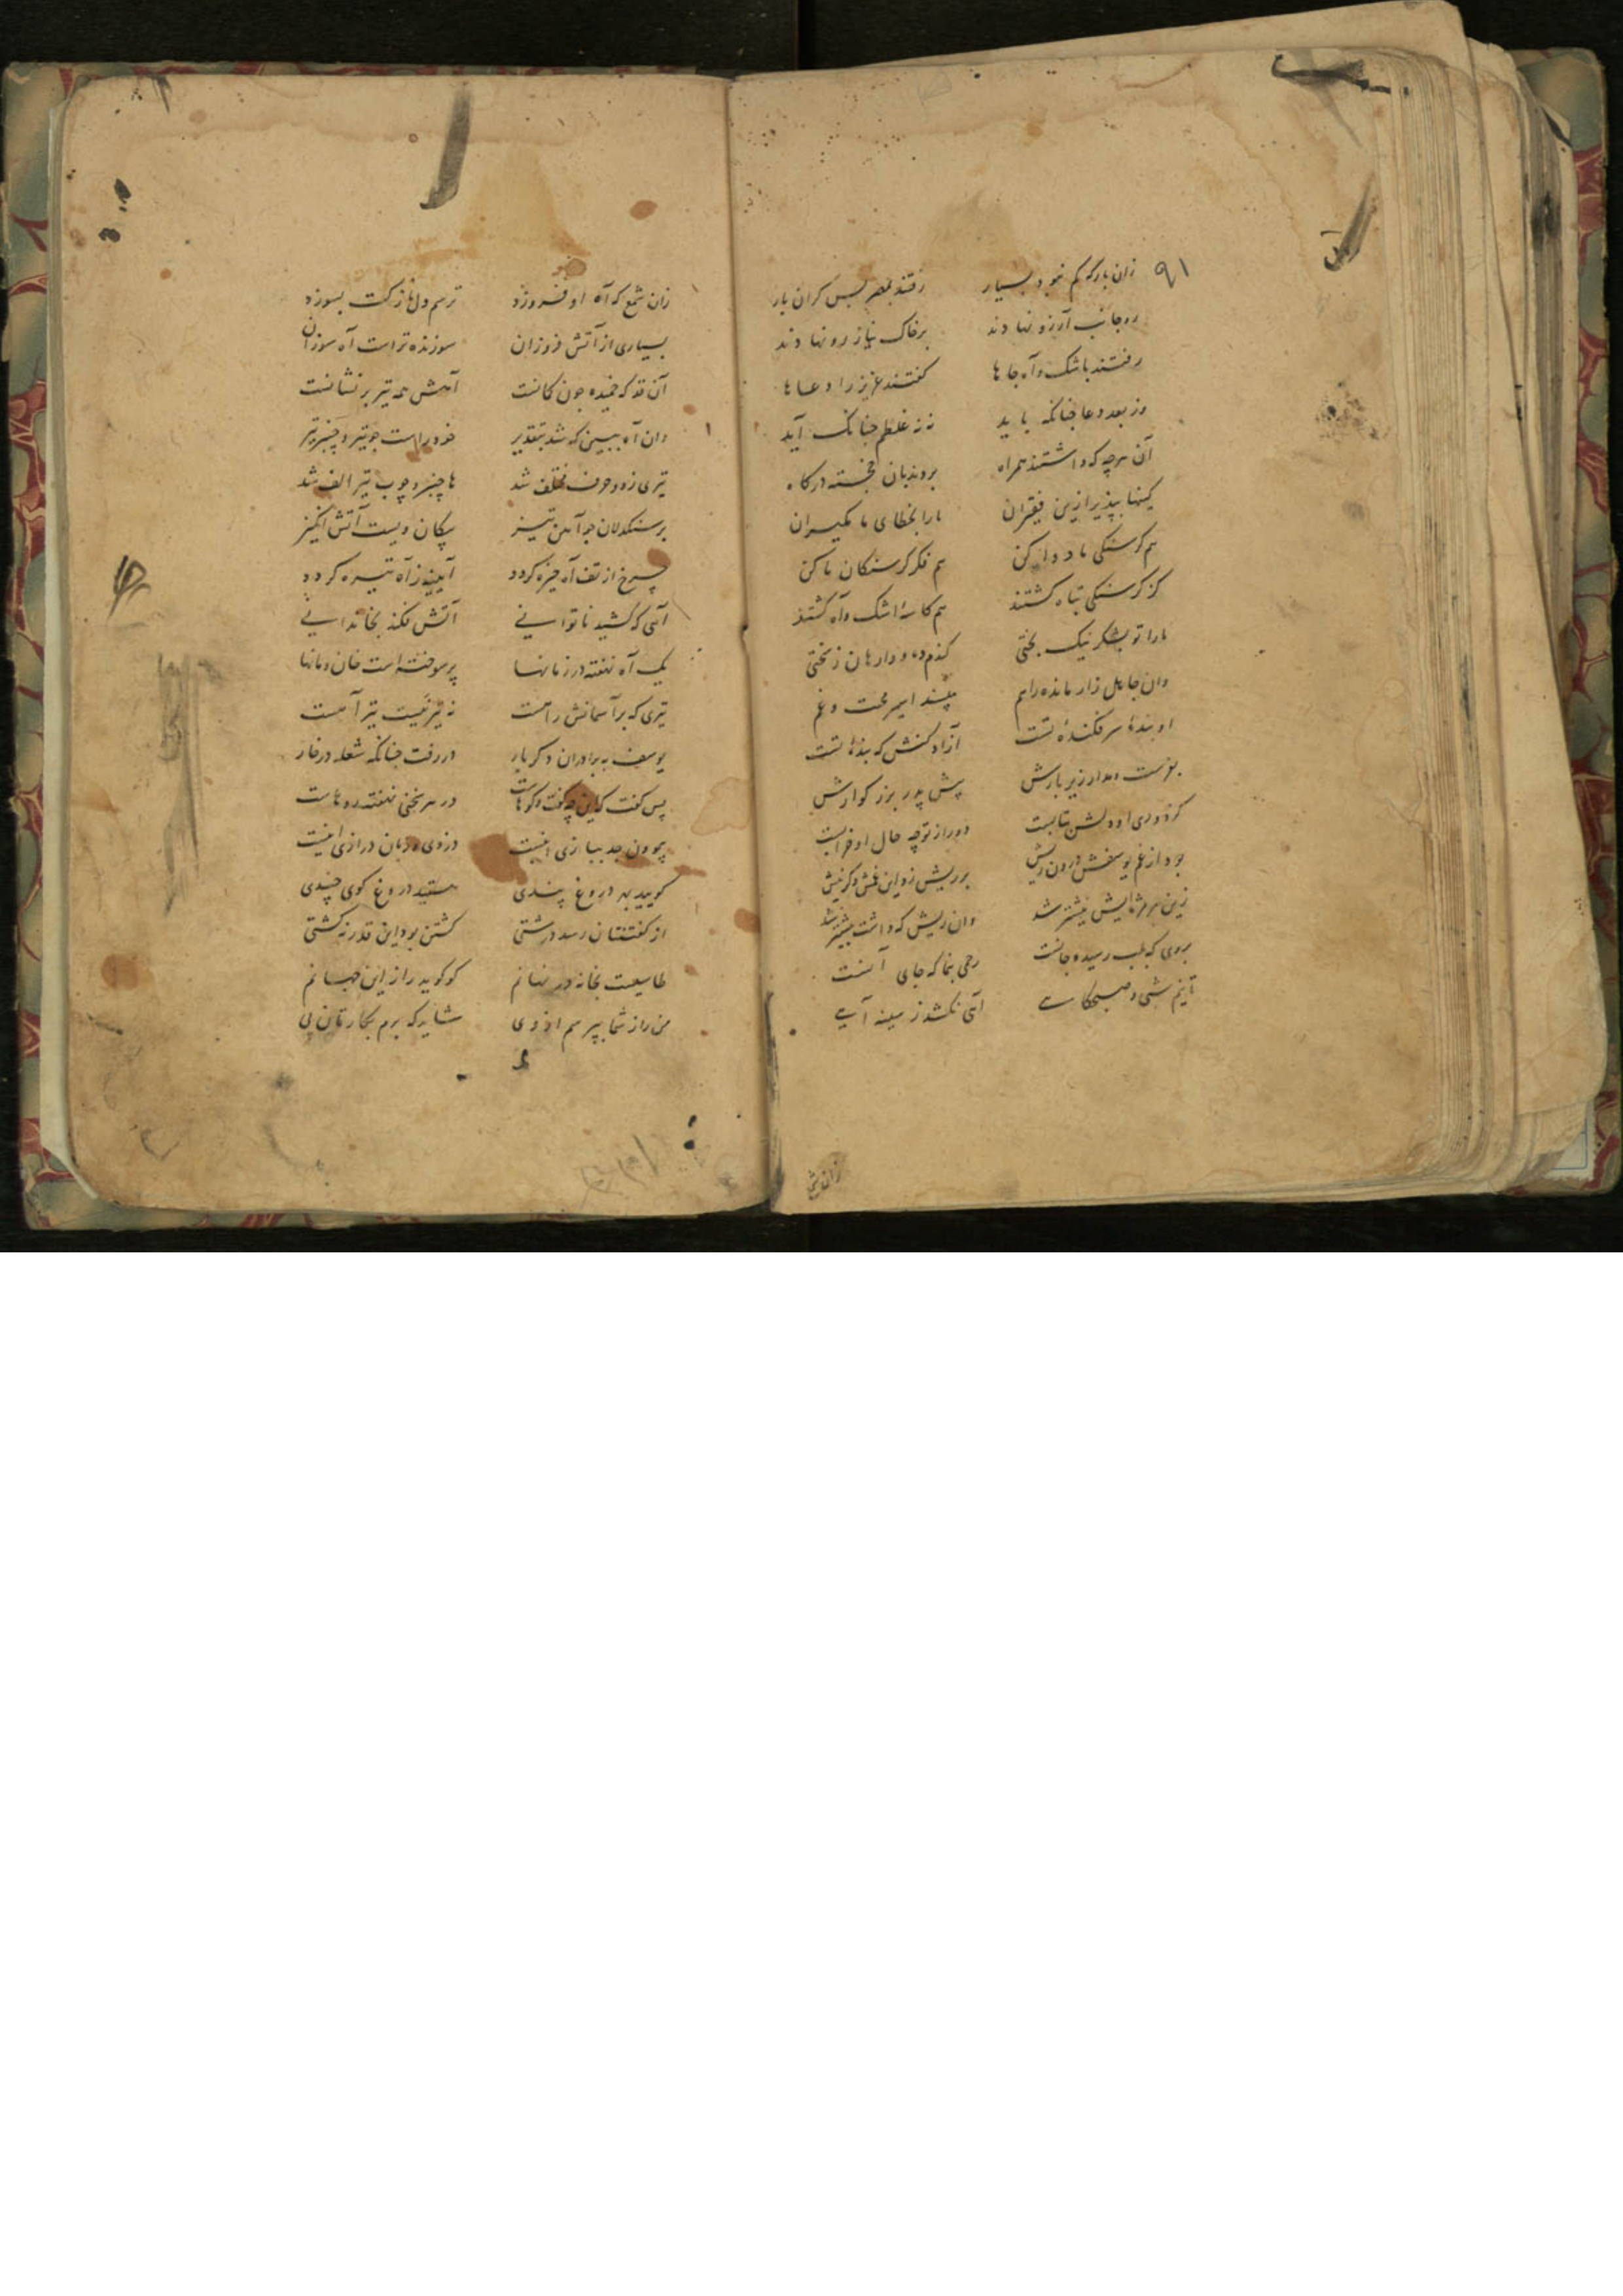 ۹۱
زان بار که کم نبود بسیار رفتند بمصر بس کران بار
ره جانب آرزو نهادند بر خاک نیاز رو نهادند
رفتند باشک و آه جا ها کفتند عزیز را دعا ها
وز بعد دعا چنانکه باید نه نه غلطم چنانک آید
آن هرچه که داشتند همراه بردند بان خجسته درکاه
کینها بپذیر ازین فقیران ما را بخطای ما مکیران
هم کرسنکی ما دوا کن هم فکر کرسنکان ما کن
کز کرسنکی تباه کشتند هم کاسهٔ اشک و آه کشتند
ما را تو بشکر نیک بختی کندم ده و وارهان ز سختی
وان جاهل زار مانده را هم مپسند اسیر محنت و غم
او بندهٔ سر فکندهٔ تست آزاد کنش که بندهٔ تست
بفرست مدار زیر بارش پیش پدر بزرکوارش
کز دوری او دلش بتابست دور از تو چه حال او خرابست
بود از غم یوسفش درون ریش بر ریش زد این غمش دکر نیش
زین هر مژه‌ایش نیشتر شد وان ریش که داشت بیشتر شد
بروی که بلب رسیده جانست رحمی بنما که جای آنست
زان شمع
زان شمع که آه او فروزد ترسم دل نازکت بسوزد
بسیاری از آتش فروزان سوزنده تر است آه سوزان
آن قد که خمیده چون کمانست آهش همه تیر بر نشانست
وان آه ببین که شد بتقدیر خود راست چو تیر و چنبر تیر
تیری ز دو حرف مختلف شد ها چنبر و چوب تیر الف شد
بر سنکدلان چو آهن تیز پیکان ویست آتش انکیز
چرخ از تف آه خیره کردد آیینه ز آه تیره کردد
آهی که کشید ناتوانی آتش فکند بخاندانی
یک آه نهفته در زمانها پر سوخته است خان و مانها
تیری که بر آسمانش راهست نه تیر نیست تیر آهست
یوسف به برادران دکر بار در رفت چنانکه شعله در خار
پس کفت که این چه کفت و کوهاست در هر سخنی نهفته روهاست
کویید بهر دروغ پندی هستید دروغ کوی چندی
از کفتنتان رسد درشتی کشتن بود این قدر نه کشتی
طاسیست بخانه در نهانم کو کوید راز این جهانم
من راز شما بپرسم از وی شاید که برم بکارتان پی